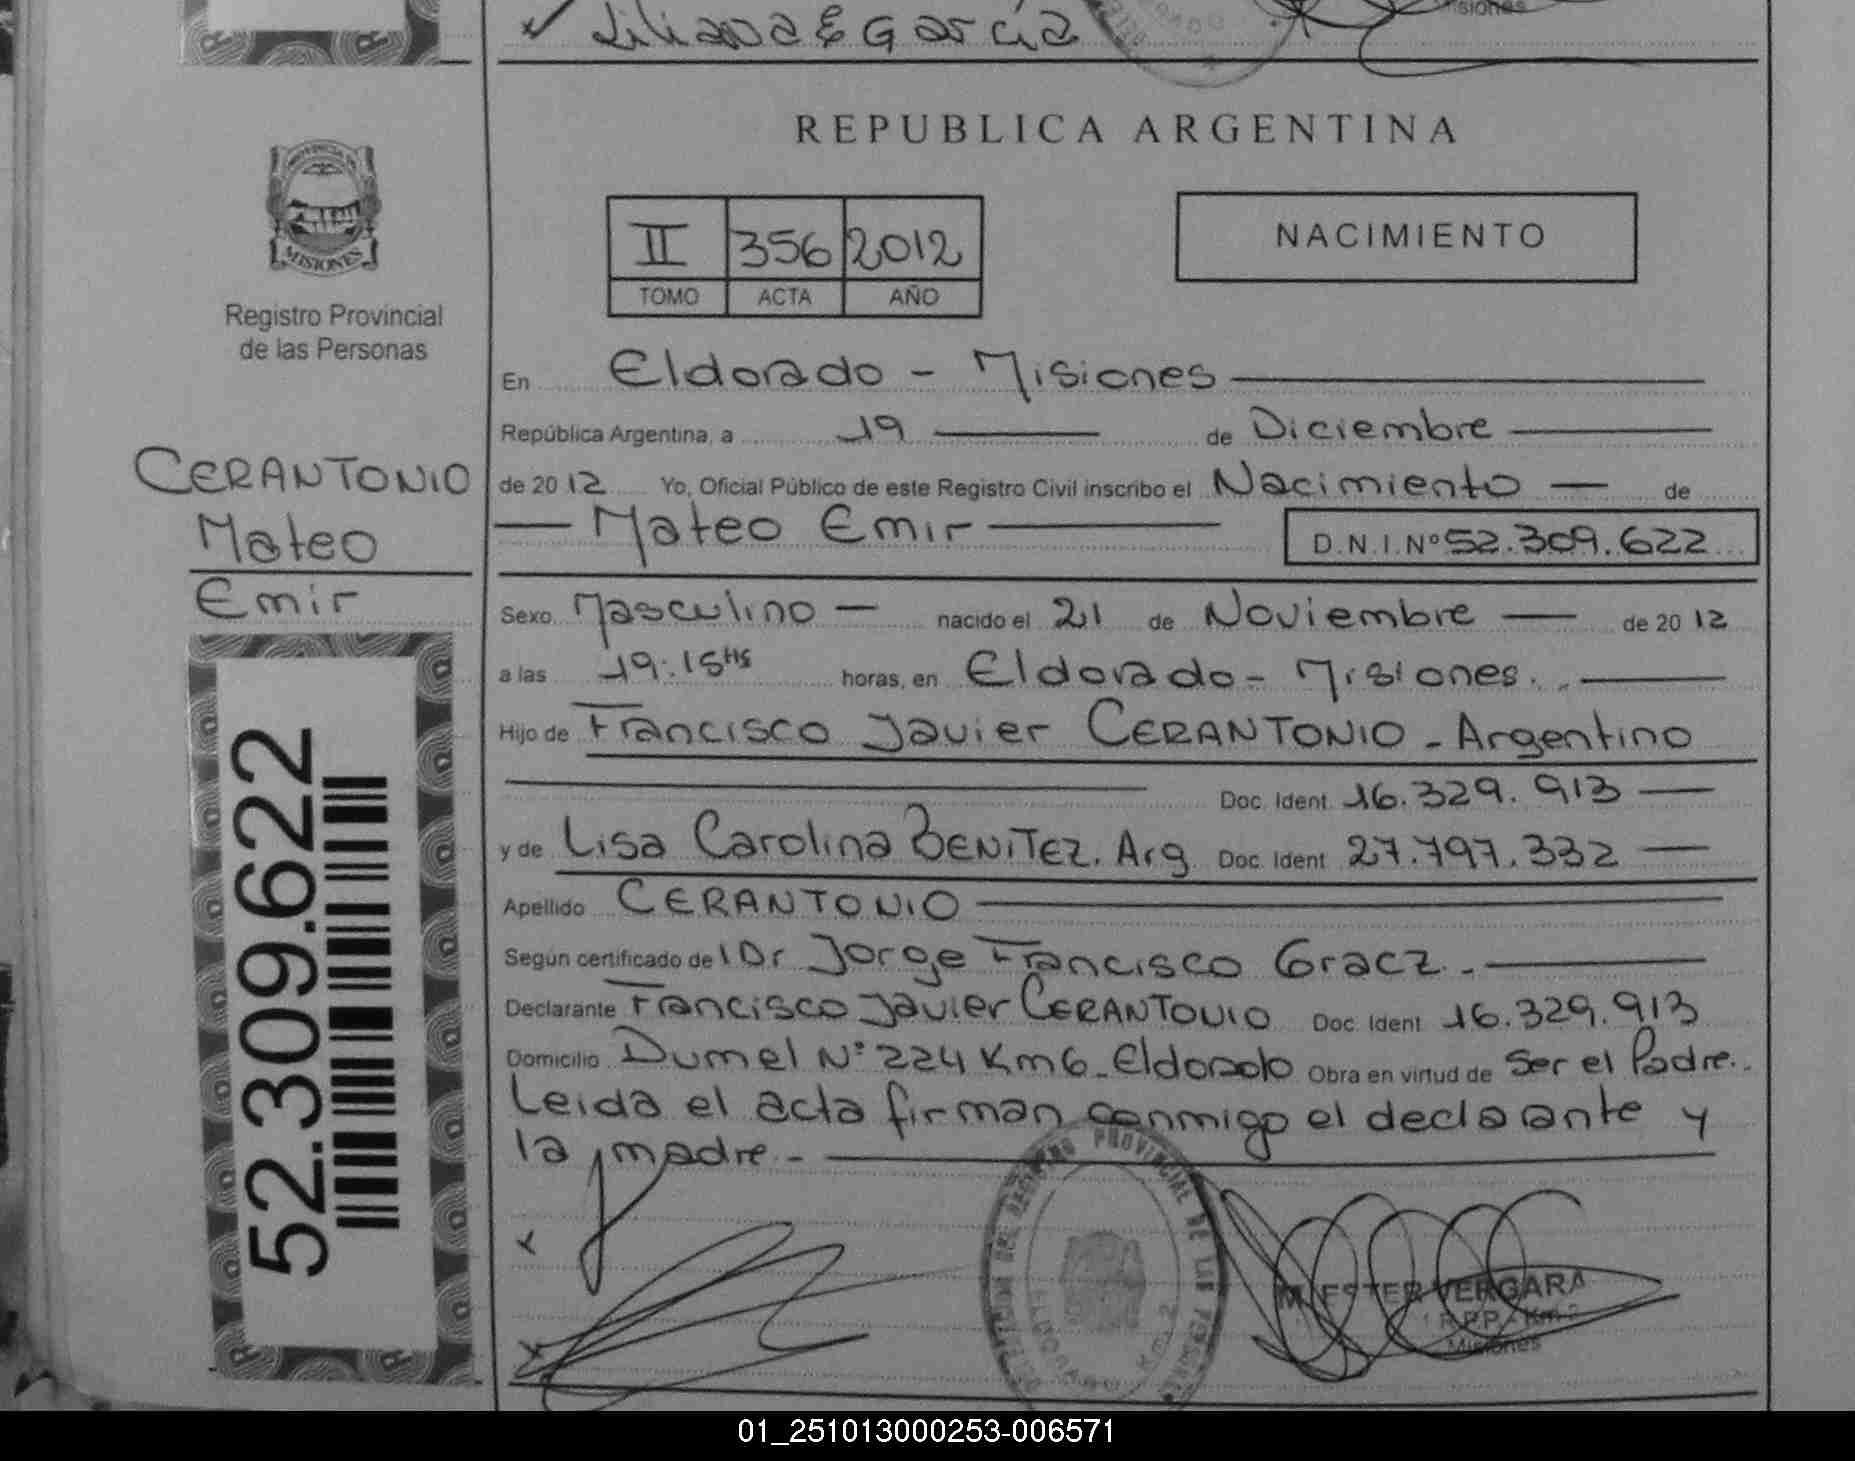 Liliana E Garcia
Misiones
REPUBLICA ARGENTINA
PROVINCIA DE
MISIONES
Registro Provincial
de las Personas
II 356 2012
TOMO ACTA AÑO
NACIMIENTO
En Eldorado - Misiones
República Argentina, a 19 de Diciembre
CERANTONIO
Mateo
Emir
de 20 12 Yo, Oficial Público de este Registro Civil inscribo el Nacimiento — de
— Mateo Emir — D.N.I.Nº 52.309.622
Sexo Masculino — nacido el 21 de Noviembre — de 20 12
a las 19:15 Hs horas, en Eldorado - Misiones.
Hijo de Francisco Javier CERANTONIO - Argentino
Doc. Ident. 16.329.913 —
y de Lisa Carolina BENITEZ. Arg Doc. Ident 27.797.332 —
Apellido CERANTONIO
Según certificado de l Dr Jorge Francisco Gracz.-
Declarante Francisco Javier CERANTONIO Doc. Ident 16.329.913
Domicilio Dumel Nº 224 Km6 - Eldorado Obra en virtud de Ser el Padre..
Leida el acta firman conmigo el declarante y
la madre.-
52.309.622
PROVINCIAL DE LAS PERSONAS
Km. 2
M. ESTER VERGARA
R.P.P. - Km 2
Misiones
01_251013000253-006571